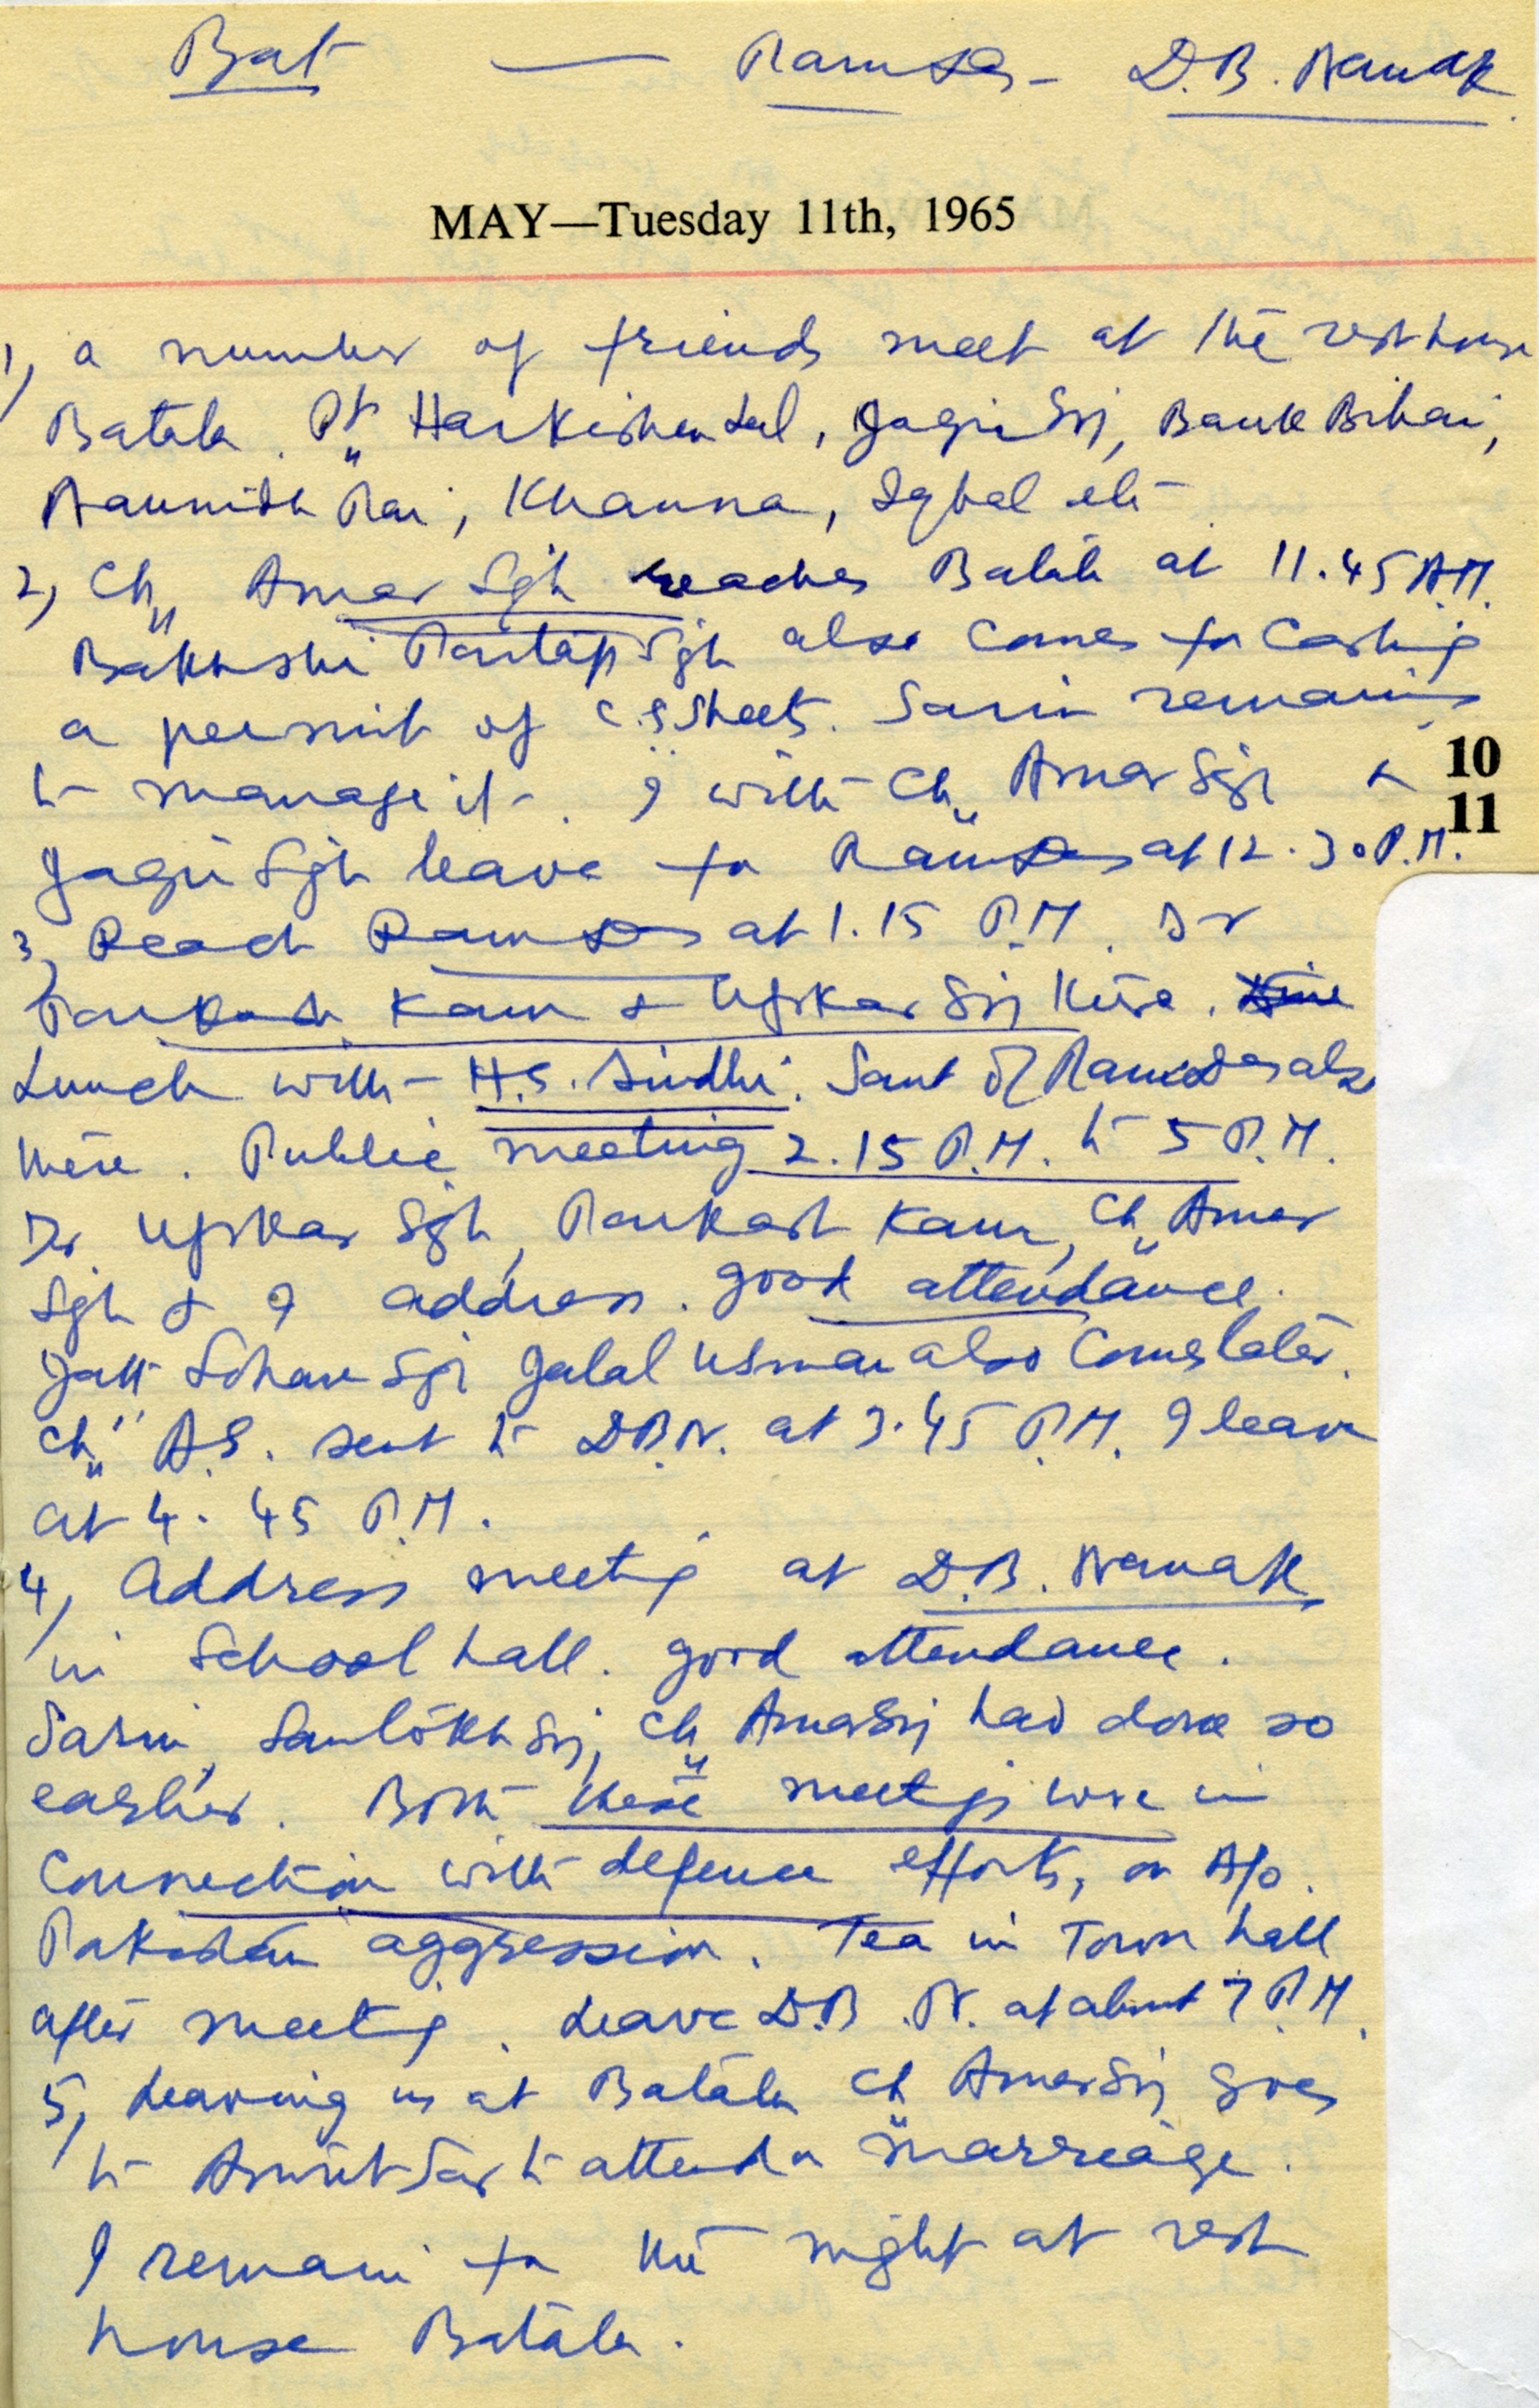 Bat — Ramdas - D.B. Nanak
MAY—Tuesday 11th, 1965
1, a number of friends meet at the rest house
Batala. Pt Harkishen Lal, Jagir Sgh, Bank Bihari,
Naunidh Rai, Khanna, Iqbal etc
2, Ch Amar Sgh reaches Batala at 11.45 A.M.
Bakhshi Partap Sgh also comes for
a permit of C.S Sheets. Sarin remains
to manage it. I with Ch Amar Sgh &
10
11
Jagir Sgh leave for Ramdas at 12.30 P.M.
3, Reach Ramdas at 1.15 P.M. Dr
Parkash Kaur & Upkar Sgh there.
Lunch with H.S. Sindhi. Sant of Ramdas also
there. Public meeting 2.15 P.M. to 5 P.M.
Dr Upkar Sgh, Parkash Kaur, Ch Amar
Sgh & I address. good attendance.
Jatt Sohan Sgh Jalal Usman also comes later.
Ch A.S. sent to D.B.N. at 3.45 P.M. I leave
at 4.45 P.M.
4, Address meeting at D.B. Nanak
in School hall. good attendance.
Sarin, Santokh Sgh, Ch Amar Sgh had done so
earlier. Both these meetings were in
connection with defence efforts, on A/o
Pakistan aggression. Tea in Town hall
after meeting. Leave D.B.N. at about 7 P.M.
5, Leaving us at Batala Ch Amar Sgh goes
to Amritsar to attend a marriage.
I remain for the night at rest
house Batala.